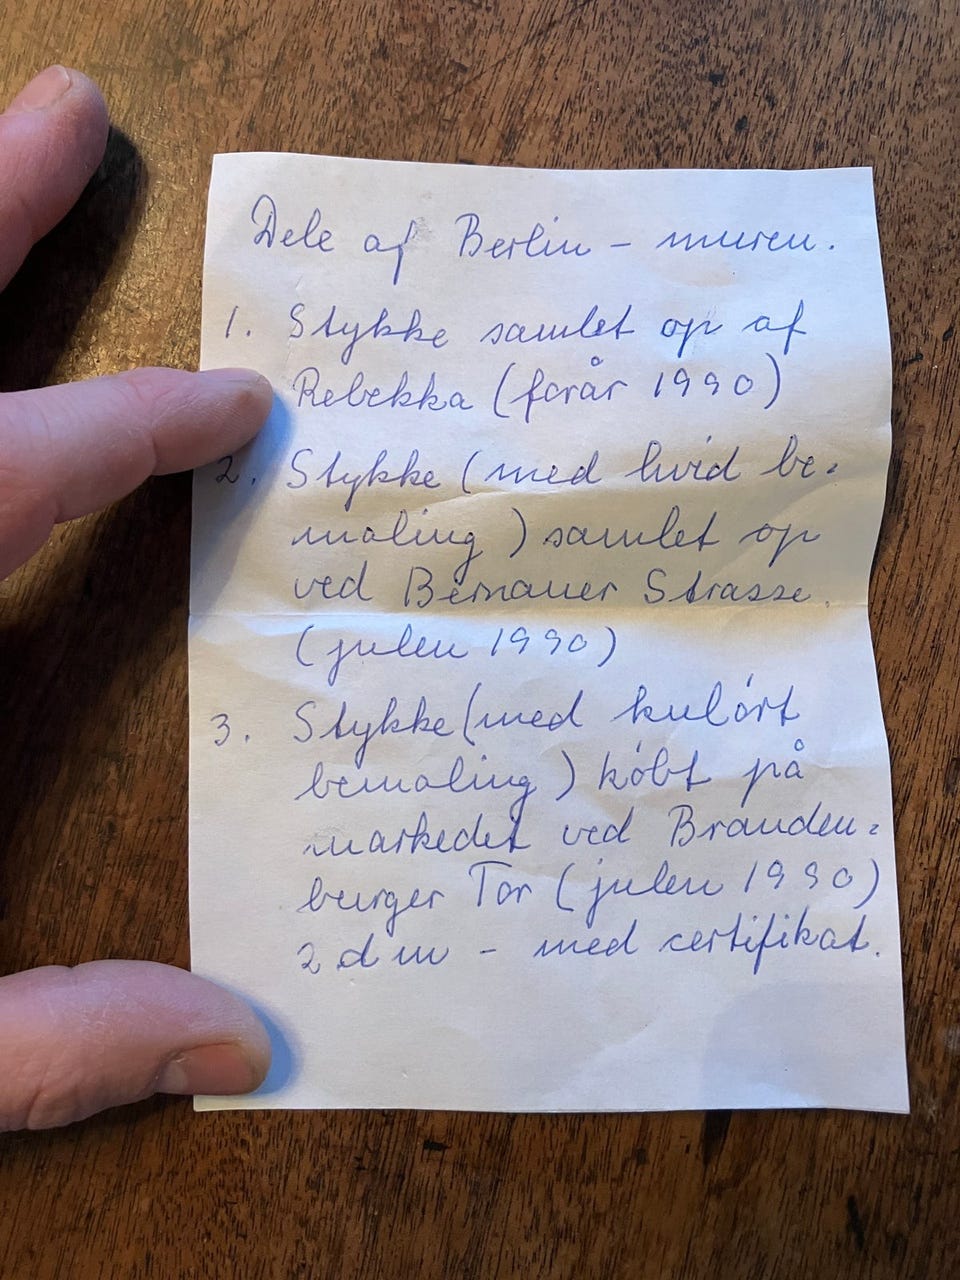 Dele af Berlin - muren.
1. Stykke samlet op af
Rebekka (forår 1990)
2. Stykke (med hvid be=
maling) samlet op
ved Bernauer Strasse.
(julen 1990)
3. Stykke (med kulørt
bemaling) købt på
markedet ved Branden=
burger Tor (julen 1990)
2 dm - med certifikat.